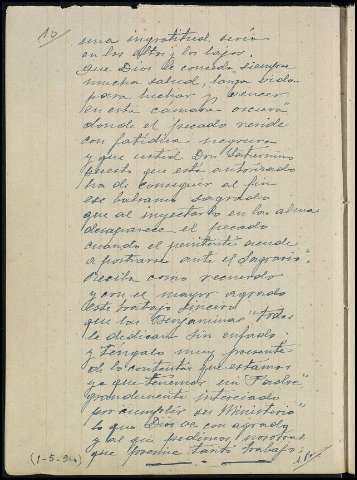 10/
una ingratitud, sería
en los altos y los bajos,
que Dios le conceda siempre
mucha salud, larga vida
para luchar y vencer
en esta cámara oscura
donde el pecado reside
con fatídica negrura
y que usted Don
puesto que está autorizado
ha de conseguir al fin
ese bálsamo sagrado
que al inyectarlo en las almas
desaparece el pecado
cuando el penitente acude
a postrarse ante el Sagrario".
Reciba como recuerdo
y con el mayor agrado
este trabajo sincero
que las "Benjaminas" todas
le dedican sin enfado
y téngalo muy presente
de lo contentas que estamos
ya que tenemos un "Padre"
grandemente interesado
por cumplir su "Ministerio"
lo que Dios ve con agrado
y al que pedimos nosotras
que premie tanto trabajo.
(1-5-94)